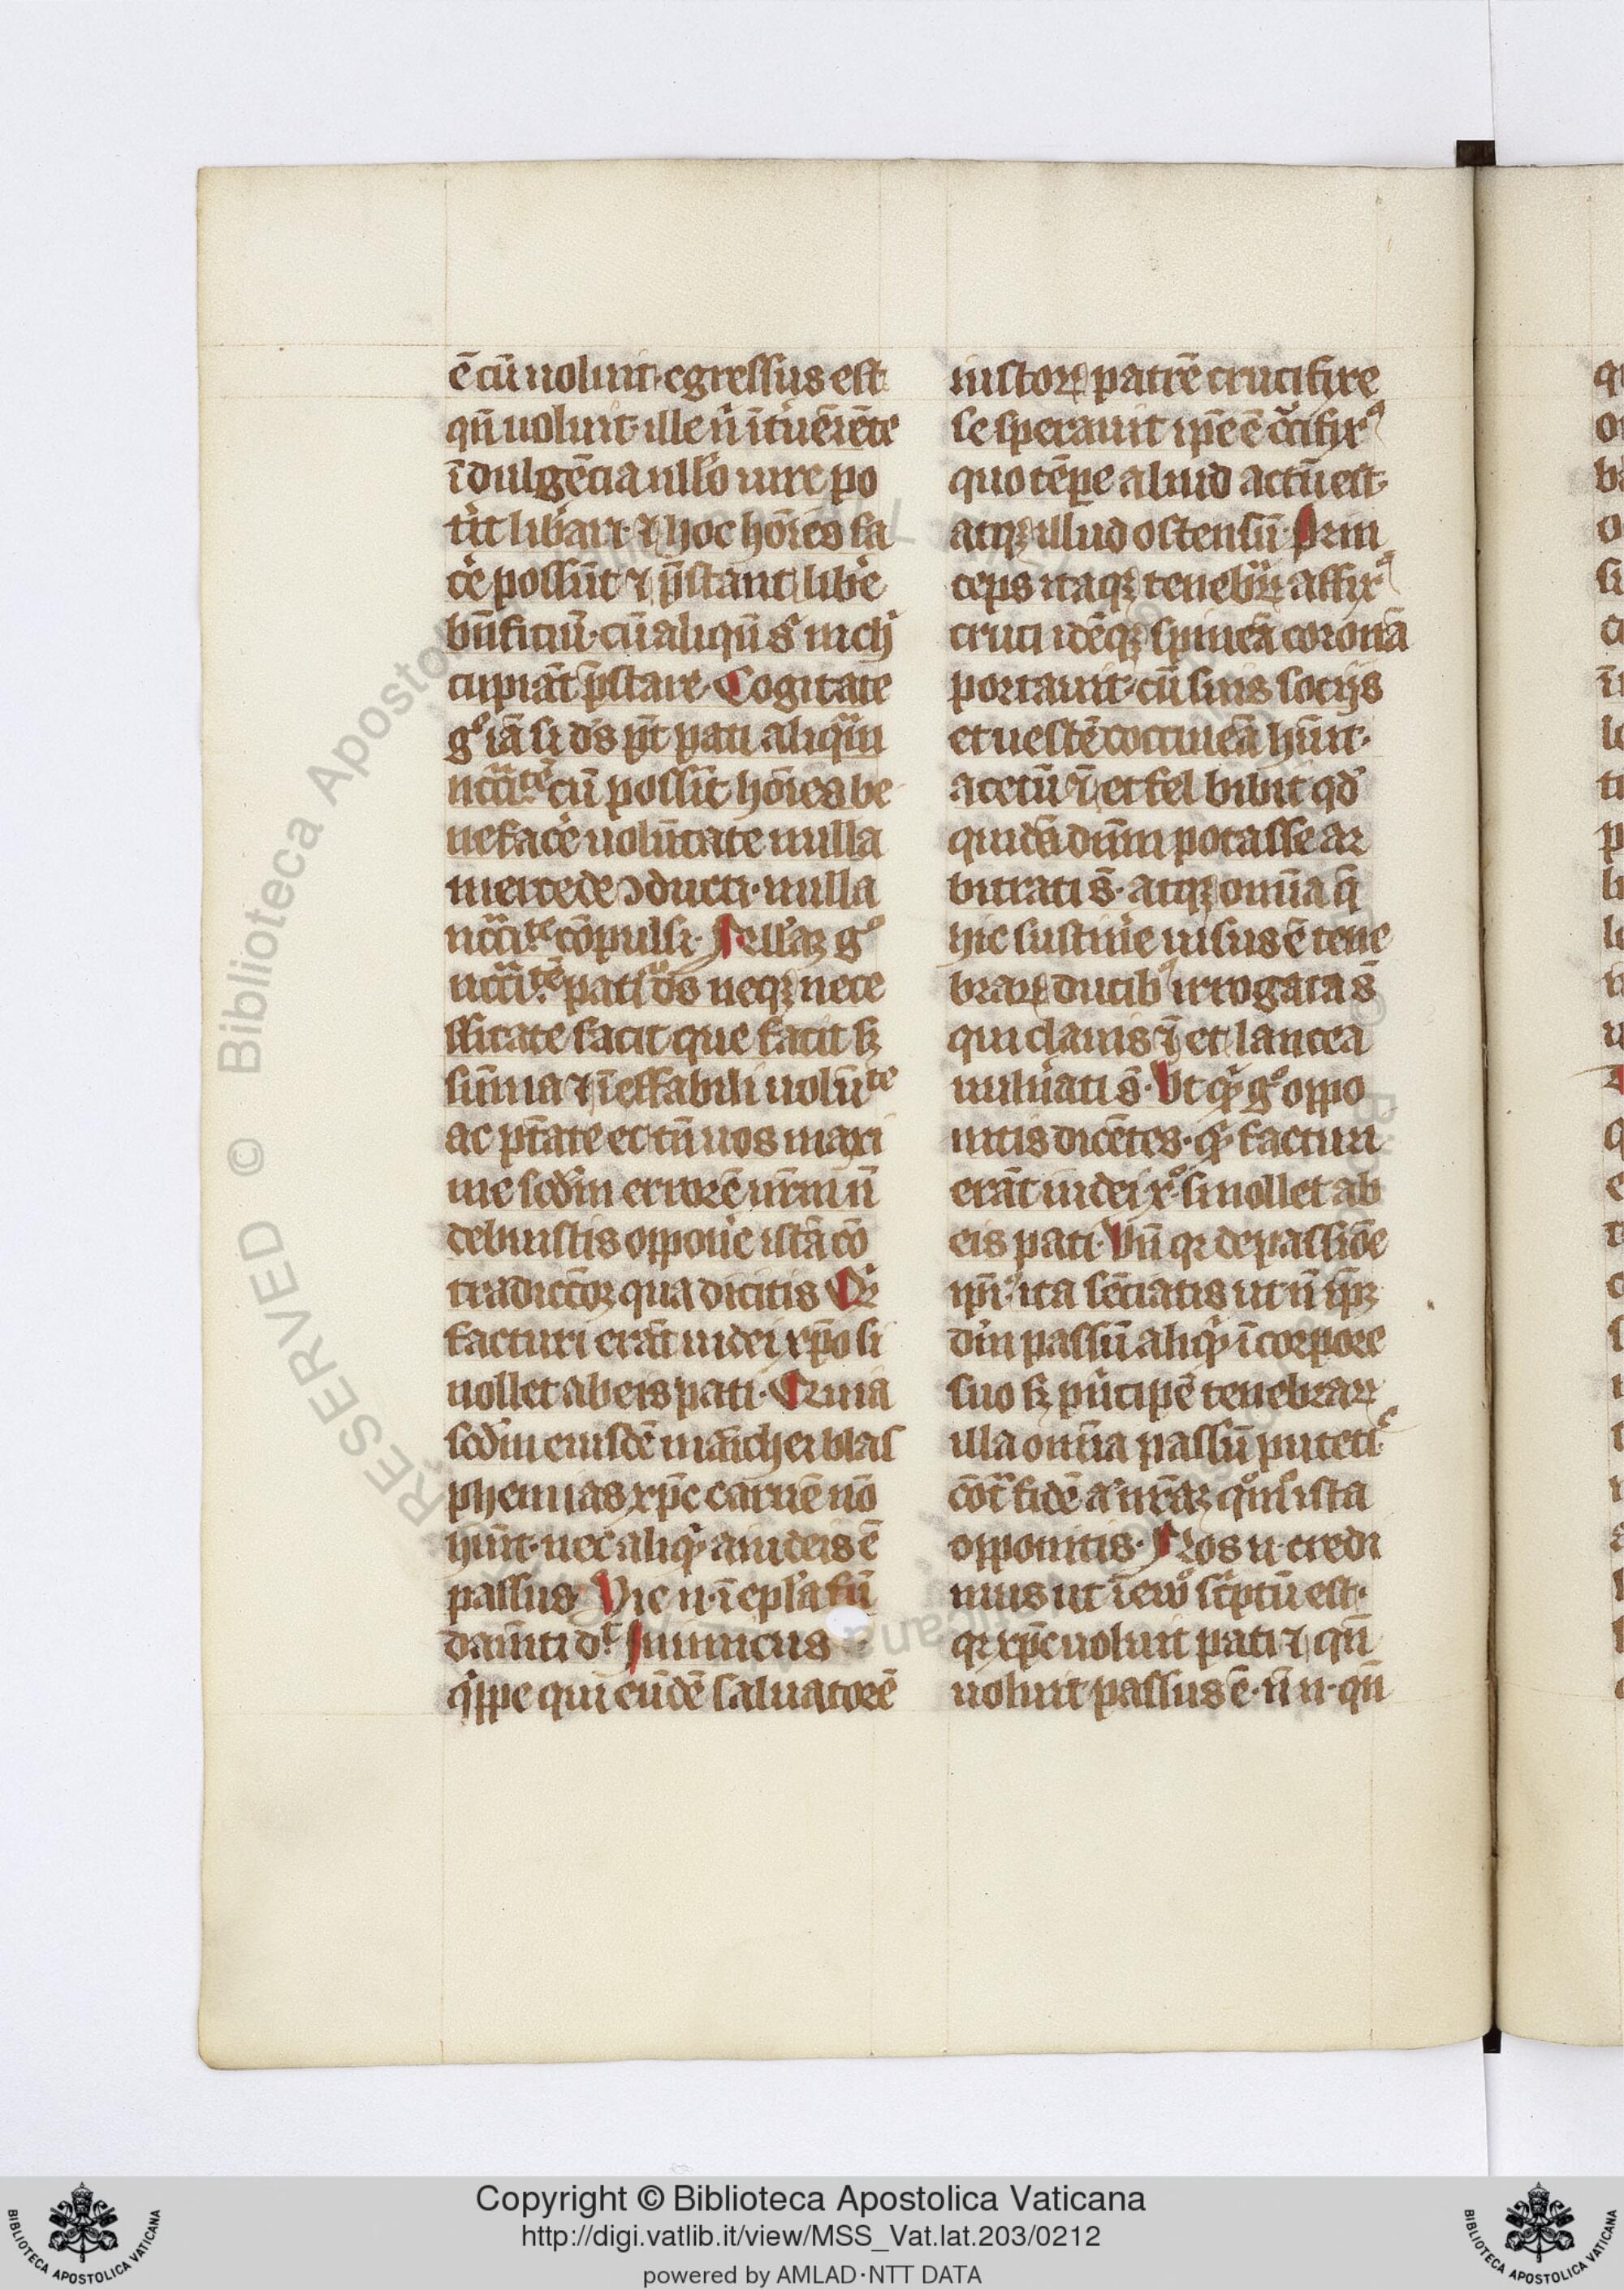 ē cū uoluit· egressus est
qn̄ uoluit· ille n̄ īt̾uēiēte
īdulgēcia ullo͛ iure po
t̾it lib̾ari· ⁊ hoc hōīes fa
c̾e possūt ⁊ p̄stant lib̾e
bn̄ficiū· cū aliqn̄ s͛ nich̾
cupiāt p̄stare· Cogitate
gº iā si ds̄ pt̄ pati aliquā
ncc̄itē cū possīt hōīes be
nefac̾e uolūtate nulla
mercede ꝯducti· nulla
ncc̄ite cōpulsi·
ncc̄itē pati ds̄ neqꝫ nece
ssitate facit que facit sꝫ
sūma ⁊ īeffabili uolūte
ac ptāte et tn̄ uos maxi
me scd̾m errorē ur̄m n̄
debuistis oppon̾e istā cō
tradictōꝫ qua dicitis
facturi erāt iudei xp̄o si
nollet ab eis pati· Quia
scd̾m eiusdē manichei blas
phemias xp̄c carnē nō
hūit· nec aliqͥ a iudeis ē
passus· Hic n· ī epl̾a fū
dam̄ti dr̄ Inimicus
qͥppe qui eūdē saluatorē
iustoꝝ patrē crucifixe
se sperauit ip̄e ē crͣcifixꝰ
quo tēpe aliud actū est·
atqꝫ illud ostensū· Prin
ceps itaqꝫ teneb̾ꝝ affixꝰ
cruci idēqꝫ spineā coronā
portauit· cū suis socijs
et uestē coccineā hūit·
acetū ⁊ et fel bibit qd̾
quidā dūm potasse ar
bitrati s̄· atqꝫ omīa q̄
hic sustin̾e uisus ē tene
braꝝ ducibꝰ irrogata s̄
qui clauis ⁊ et lancea
uuln̾ati s̄· Ut qͥ gº oppo
nitis dicētes· qͥ facturi
erāt iudei xº si nollet ab
eis pati· Uñ qꝛ de passiōe
ip̄iꝰ ita sētiatis ut n̄ ip̄ꝫ
dn̄m passū aliqͥ ī corpore
suo sꝫ pͥncipē tenebraꝝ
illa omīa passū putetis
cōtͣ fidē ur̄aꝫ ista
opponitis· Nos u· credi
mus ut ī ewº sc̾ptū est·
qꝛ xp̄c uoluit pati ⁊ qn̄
uoluit passus ē· n̄ n· qn̄
Copyright © Biblioteca Apostolica Vaticana
http://digi.vatlib.it/view/MSS_Vat.lat.203/0212
powered by AMLAD·NTT DATA